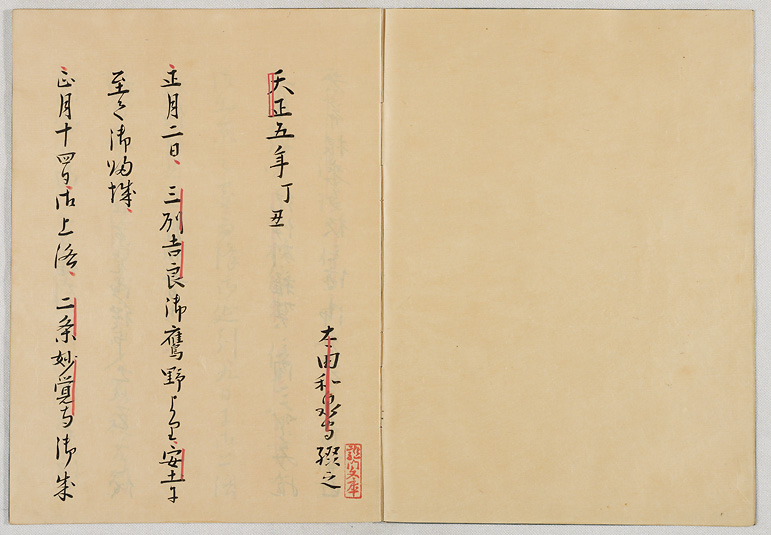 太田和泉守綴之
天正五年丁丑
正月二日、三州吉良御鷹野より安土に
至て御帰城、
正月十四日御上洛、二条妙覚寺御成